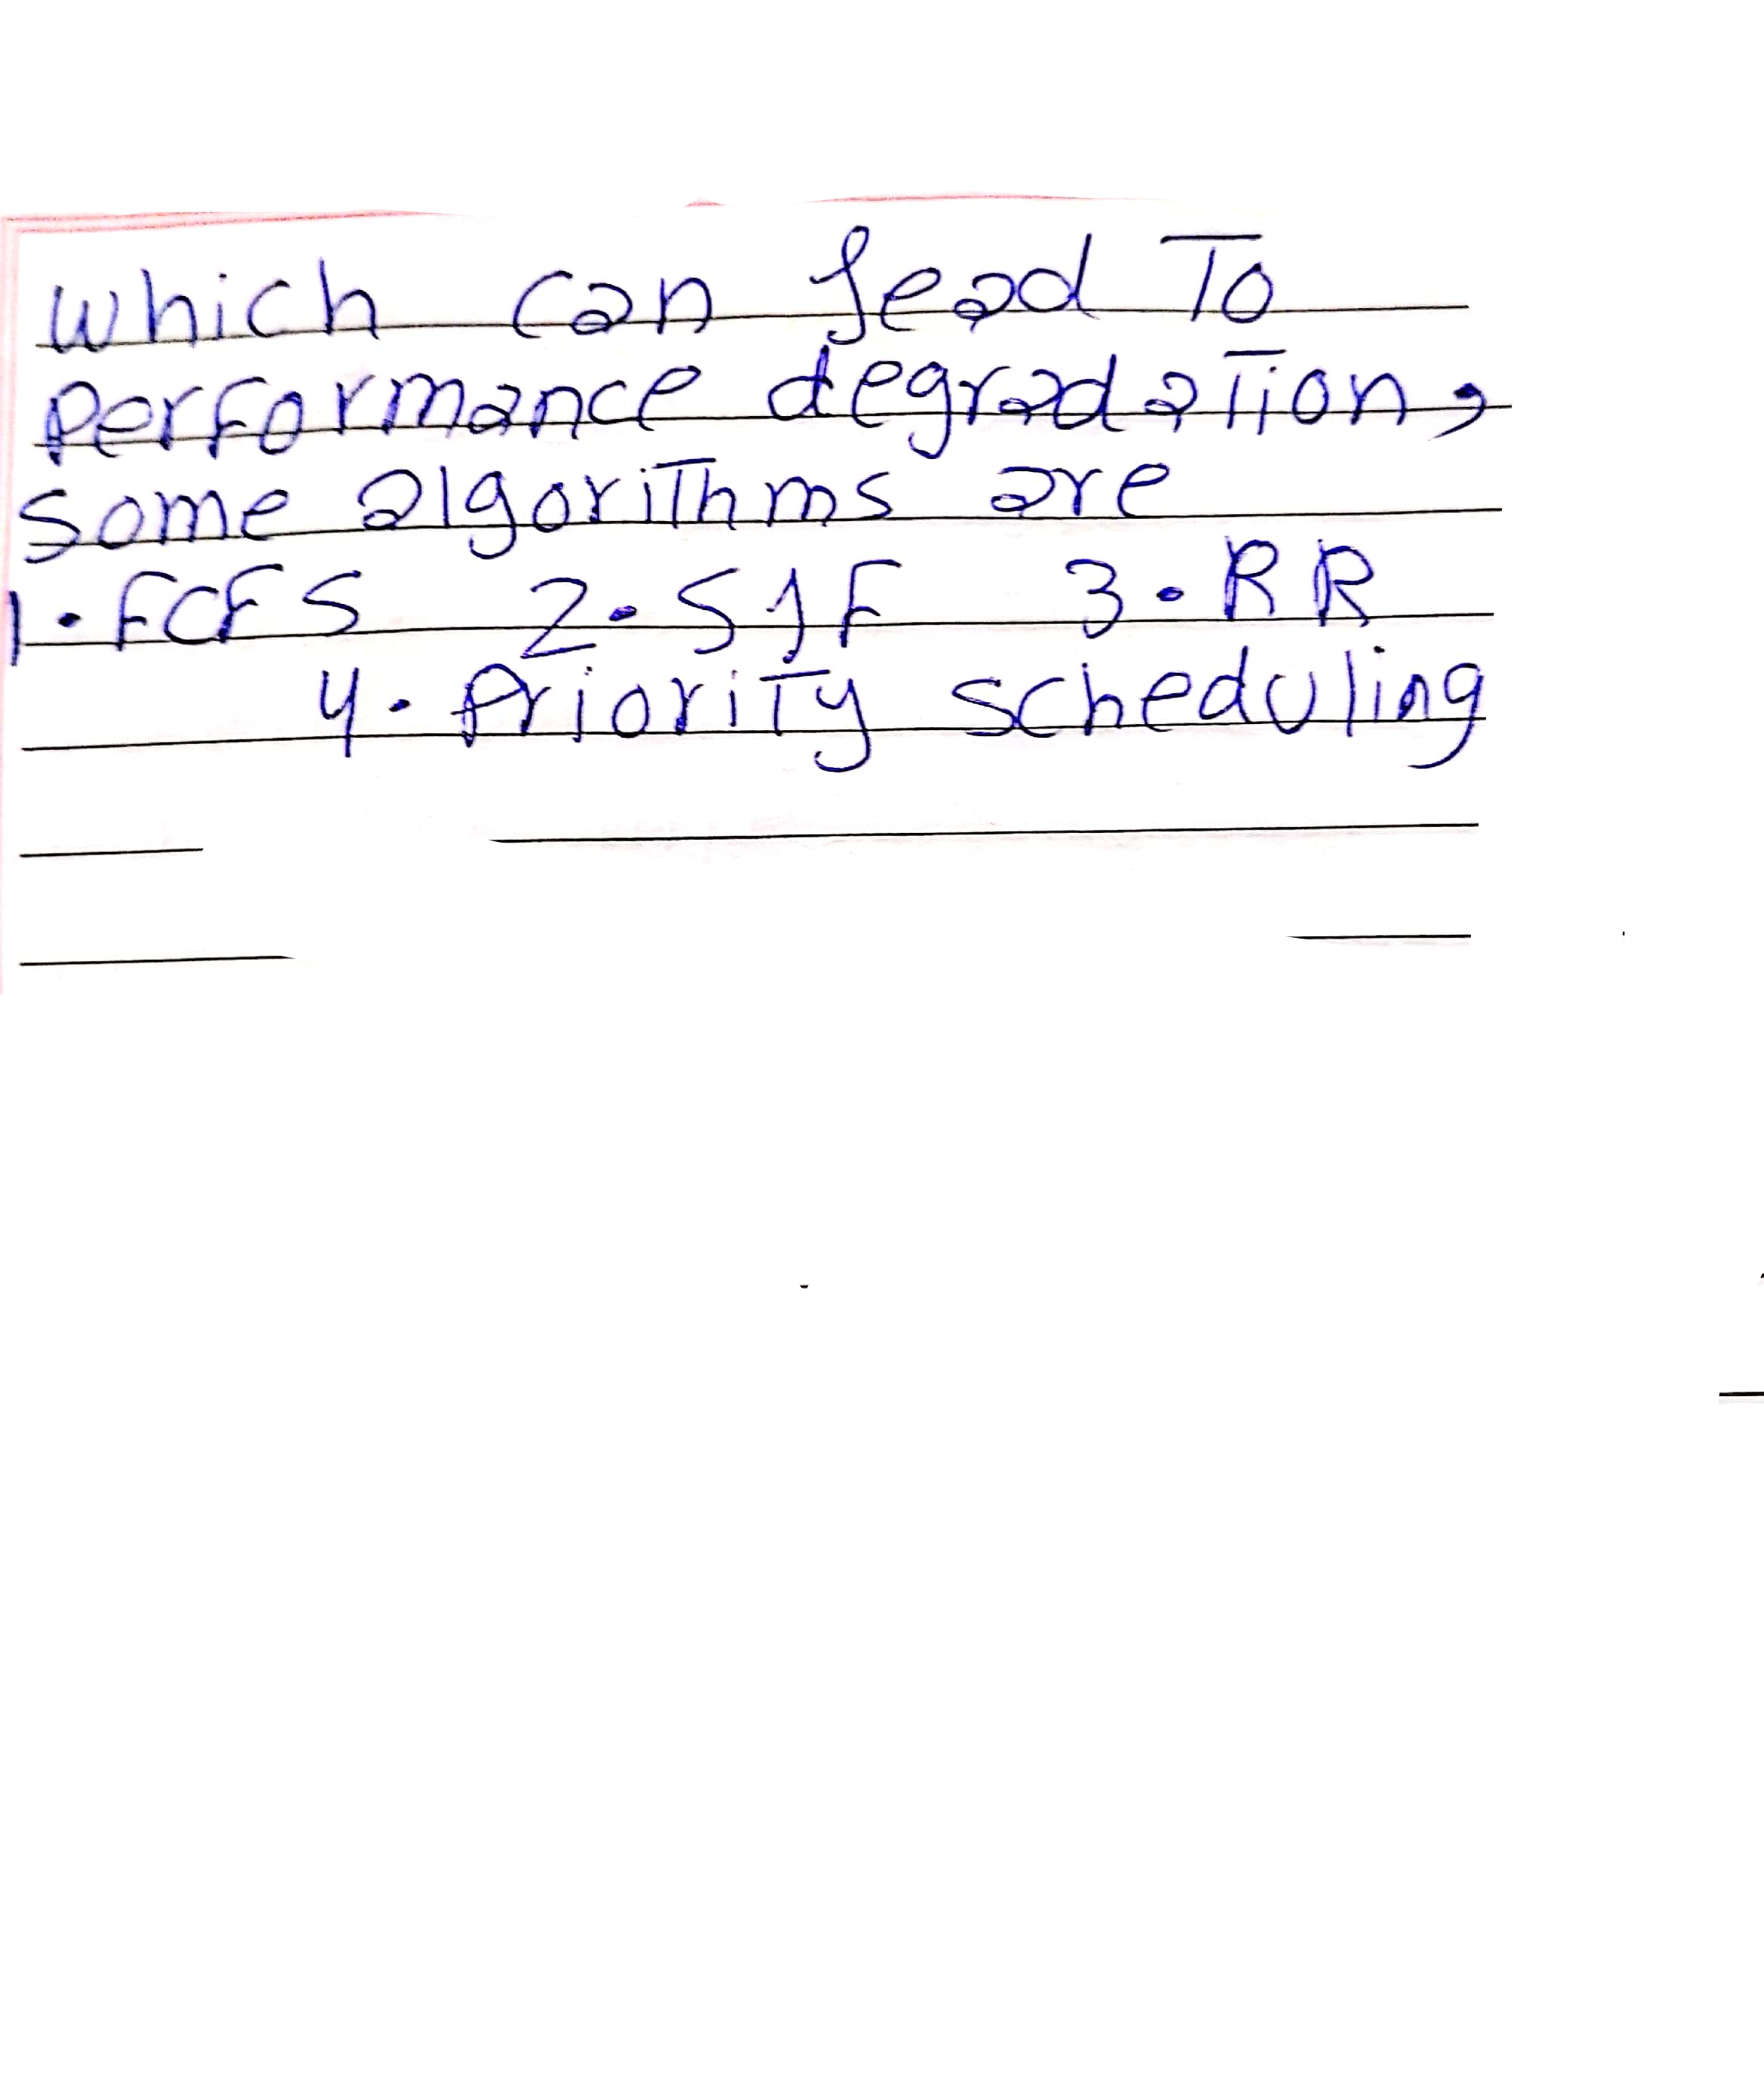 which can lead To
performance degradation,
some algorithms are
1. FCFS 2. SJF 3. RR
4. Priority scheduling